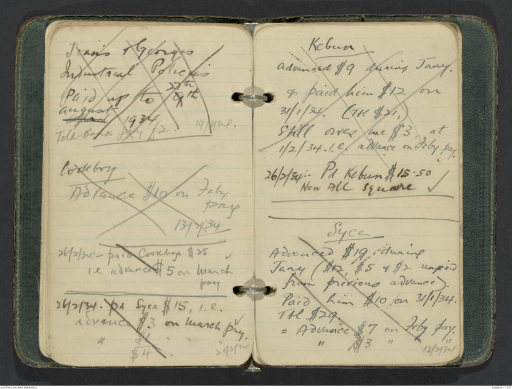 Jean's & George's
Industrial Policies
Paid up to 27th
August
1934
19/2/34.
Cookboy
Advance $10 on Feby
pay
13/2/34
26/2/34 - paid Cookboy $25
i.e. advance $5 on March
pay
26/2/34. pd Syce $15, i.e.
advance $3 on March pay.
" $1 "
$4
26/2/34
Kebun
advanced $9 during Jany.
& paid him $12 on
31/1/34. (Ttl $21,
Still owes me $3 at
1/2/34. i.e. advance on Feby pay.
26/2/34:- Pd Kebun $15.50
Now All Square
Syce
Advanced $19 during
Jany ($12, $5 & $2 unpaid
from previous advance)
Paid him $10 on 31/1/34.
Ttl $29.
= Advance $7 on Feby pay.
" $3 " "
13/2/34